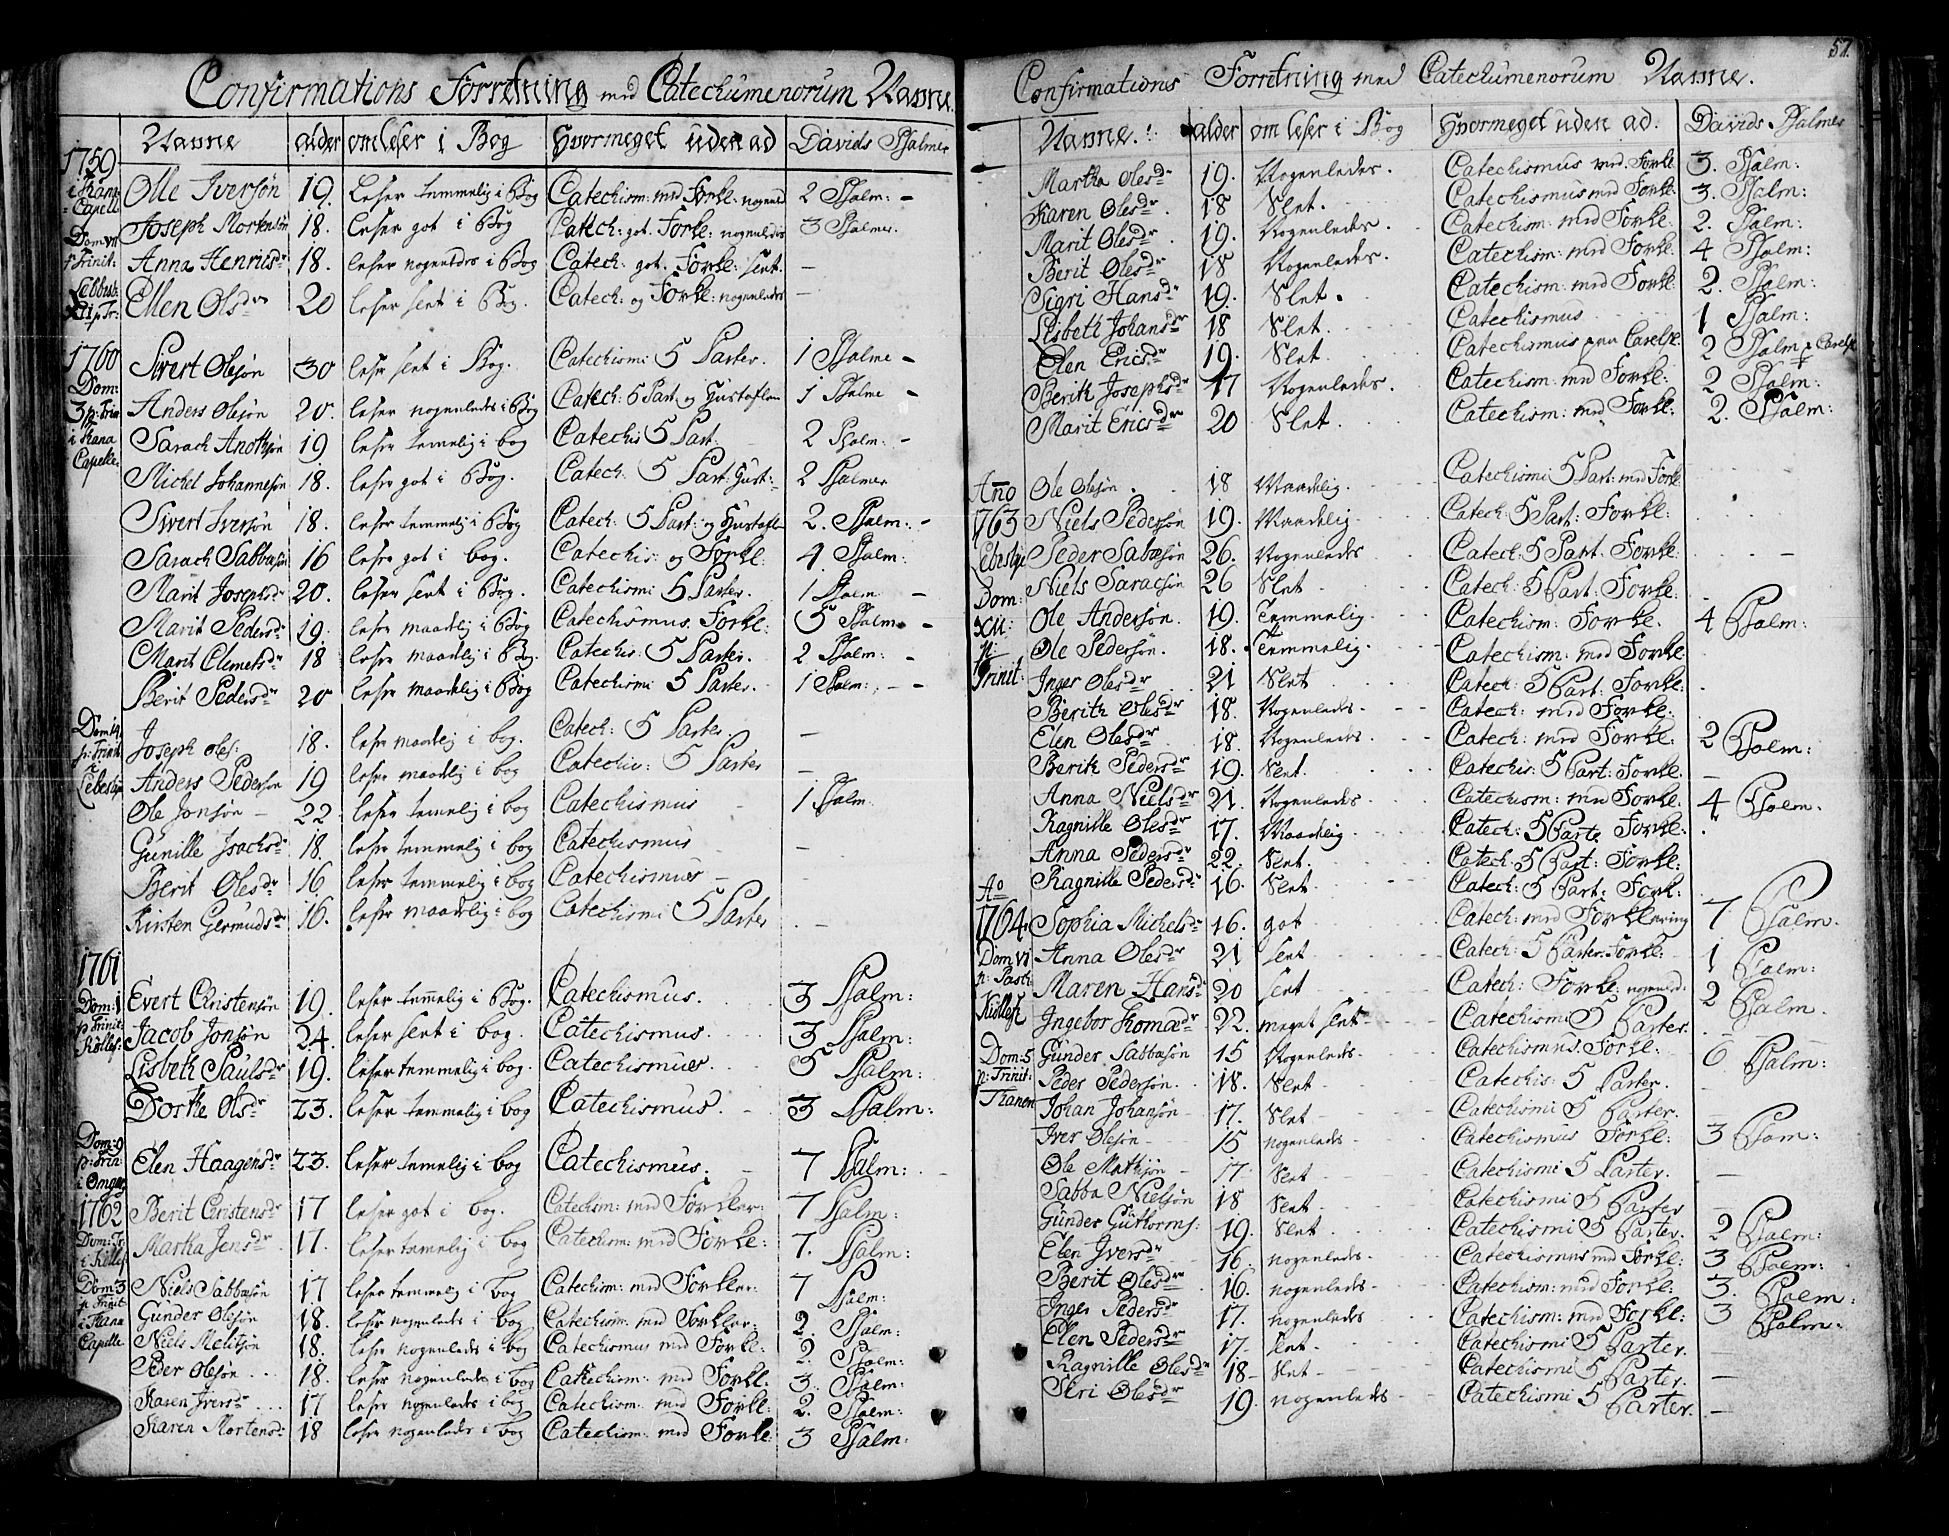 Confirmations Forretning med Catechumenorum Navne.
Navne alder om læser i Bog Hvormeget uden ad Davids Psalmer
1759
i Thana
Capell
Olle Iversøn 19. læser temmelig i Bog Catechism: med Forkl: nogenl 2 Psalm: -
Joseph Mortensøn 18. læser got i Bog Catech: got. Forkl: nogenledes 3 Psalmer.
Dom: VII
p Trinit:
Anna Henricsdr 18. læser nogenledes i Bog Catech: got. Forkl: slet. -
Lebbesb:
Ellen Olsdr 20 læser slet i Bog. Catech: og Forkl: nogenledes -
1760
Dom:
3 p: Trin
i Tana
Capelle.
Sivert Olesøn 30 læser slet i Bog. Catechismi 5 Parter. 1 Psalme -
Anders Olesøn 20. læser nogenleds i Bog Catech: 5 Part og Hustaflen 1 Psalme -
Sarach Anothsøn 19 læser temelig i bog Catechis 5 Part. 2 Psalm: -
Michel Johannesøn 18. læser got i Bog. Catech: 5 Part: Hust:- 2 Psalmer
Sivert Iversøn 18. læser temmelig i Bog Catech: 5 Part: og Hustafle 2. Psalm: -
Sarach Sabbasøn 16 læser got i bog. Catechis: og Forkl: 4. Psalm:
Marit Josephsdr 20. læser slet i Bog. Catechismi 5 Parter. 1 Psalm -
Marit Pedersdr 19. læser maadelig i Bog Catechismus. Forkl: 5 Psalm. -
Marit Clemetsdr 18 læser maadelig i Bog. Catechis: 5 Parter. 2 Psalm: -
Berit Pedersdr 20 læser maadelig i Bog Catechismi 5 Parter. 1 Psalm: -
Dom: 14
p: Trinit
i
Lebesby
Joseph Oles: 18. læser maadelig i bog. Catech: 5 Parter. -
Anders Pedersøn 19 læser maadelig i bog Catechis: 5 Parter -
Ole Jonsøn - 22. læser temelig i bog Catechismus - 1 Psalm.
Gunille Isachsdr 18. læser temmelig i bog Catechismus -
Berit Olesdr 16. læser temmelig i bog Catechismus - -
Kirsten Germundsdr 16. læser maadelig i bog Catechismi 5 Parter . -
1761
Dom: 1
p Trinit:
Kiøllef:
Evert Christensøn 19. læser temelig i Bog. Catechismus. 3 Psalm:
Jacob Jonsøn 24. læser slet i bog. Catechismus. 3 Psalm:
Lisbeth Paulsdr 19. læser temmelig i bog. Catechismus. 5 Psalm:
Dorthe Olsdr 23. læser temmelig i bog Catechismus. 3 Psalm:
Dom: 9
p: Trin:
i Omgang
Elen Haagensdr 23. læser temelig i bog Catechismus. 7 Psalm:
1762
Dom: Tr
i Kiøllef
Berit Christensdr 17 læser got i bog. Catechism: med Forkler: 7 Psalm:
Martha Jensdr 17. læser temelig i bog Catechism: med Forkl: 7. Psalm:
Dom: 3
p Trinit:
i Tana
Capelle
Niels Sabbasøn 17 læser temmelig i bog Catechism: med Forkler: 7 Psalm:
Gunder Olesøn 18. læser nogenleds i bog Catechism: med Forkler: 2. Psalm:
Niels Melitsøn 18. læser nogenleds i bog Catechismus med Forkl: 2. Psalm:
Per Olesøn ... 18. læser nogenleds i bog Catechism: med Forkl. 3. Psalm:
Karen Iversdr ... 17 læser nogenleds i bog Catechism: med Forkl: 2. Psalm:
Karen Mortensdr 18 læser nogenleds i bog Catechism: med Forkl: 3 Psalm:
57.
Confirmations Forretning med Catechumenorum Navne.
Navne. alder om læser i Bog Hvormeget uden ad. Davids Psalmer
Martha Olesdr 19. Nogenledes. Catechismus med Forkl: 3. Psalm:
Karen Olesdr 18 Slet. Catechismus med Forkl: 3. Psalm:
Marit Olesdr 19. Nogenledes. Catechism: med Forkl: 2. Psalm:
Berit Olesdr 18 Nogenledes. Catechism: med Forkl: 4 Psalm:
Sigri Hansdr 19. Slet. Catechism: med Forkl: 2. Psalm:
Lisbeth Johansdr 18 Slet. Catechismus 1 Psalm:
Elen Ericsdr 19. Slet. Catechismus 2 Psalm
Berith Josephsdr 17 Nogenledes. Catechism: med Forkl: 2 Psalm:
Marit Ericsdr 20 Slet. Catechism: med Forkl: 2. Psalm:
Año
1763
Lebesbye
Dom:
XII:
p:
Trinit:
Ole Olesøn. 18 Maadelig. Catechismi 5 Part: med Forkl
Niels Pedersøn 19. Maadelig. Catech: 5 Part: Forkl:
Peder Sabasøn 26. Nogenledes Catech: 5 Part. Forkl: -
Niels Saracsøn 26 Slet. Catech: 5 Part: Forkl:
Ole Andersøn. 19. Temmelig. Catechism: Forkl. 4 Psalm:
Ole Pedersøn. 18. Temmelig. Catechism: med Forkl:
Inger Olesdr 21 Slet Catech: 5 Part: Forkl:
Berith Olesdr 18. Nogenleds. Catech: med Forkl:
Elen Olesdr 18. Nogenleds. Catech: med Forkl: 2 Psalm:
Berith Pedersdr 19. Slet. Catechis: 5 Part: Forkl: -
Anna Nielsdr 21. Nogenleds. Catechism: med Forkl. 4 Psalm:
Ragnille Olesdr 17. Maadelig. Catech: 5 Parte Forkl:
Anna Pedersdr 22. Slet. Catech: 5 Part: Forkl:
Ragnille Pedersdr 16. Slet. Catech: 5 Part: Forkl:
Ao
1764
Dom: VI
p: Pasch:
Kiøllef:
Sophia Michelsdr 16. got Catech: med Forklaring 7 Psalm.
Anna Olesdr 21 slet Catech: 5 Parter. Forkl: 1 Psalm:
Maren Hansdr 20 slet Catech: Forkl: nogenled: 2 Psalm.
Ingebor Thomædr 22. meget slet- Catechismi 5 Parter.
Dom: 5
p: Trinit:
Thanen
Gunder Sabbasøn 15 Nogenleds. Catechismus. Forkl: 6 Psalm:
Peder Pedersøn. 18. Slet - Catechis: 5 Parter. -
Johan Johansøn 17. Slet - Catechismi 5 Parter. -
Iver Olesøn 15 nogenleds - Catechismus Forkl: 3 Psalm:
Ole Mathisøn 17. Slet - Catechismi 5 Parter. -
Sabba Nielsøn 18 Slet - Catechismi 5 Parter -
Gunder Guthorms: 19. Slet - Catechismi 5 Parter. 2 Psalm:
Elen Iversdr 16. nogenleds. Catechismus med Forkl: 3 Psalm:
Berit Olesdr 16. nogenleds - Catechism: med Forkl: 3. Psalm:
Inger Pedersdr 17. nogenleds Catechism: med Forkl: 3 Psalm:
Elen Pedersdr 17- slet. Catechismi 5 Parter. -
Ragnille Olesdr 18- slet - Catechismi 5 Parter. -
Siri Olesdr 19. nogenleds Catechismi 5 Parter. -